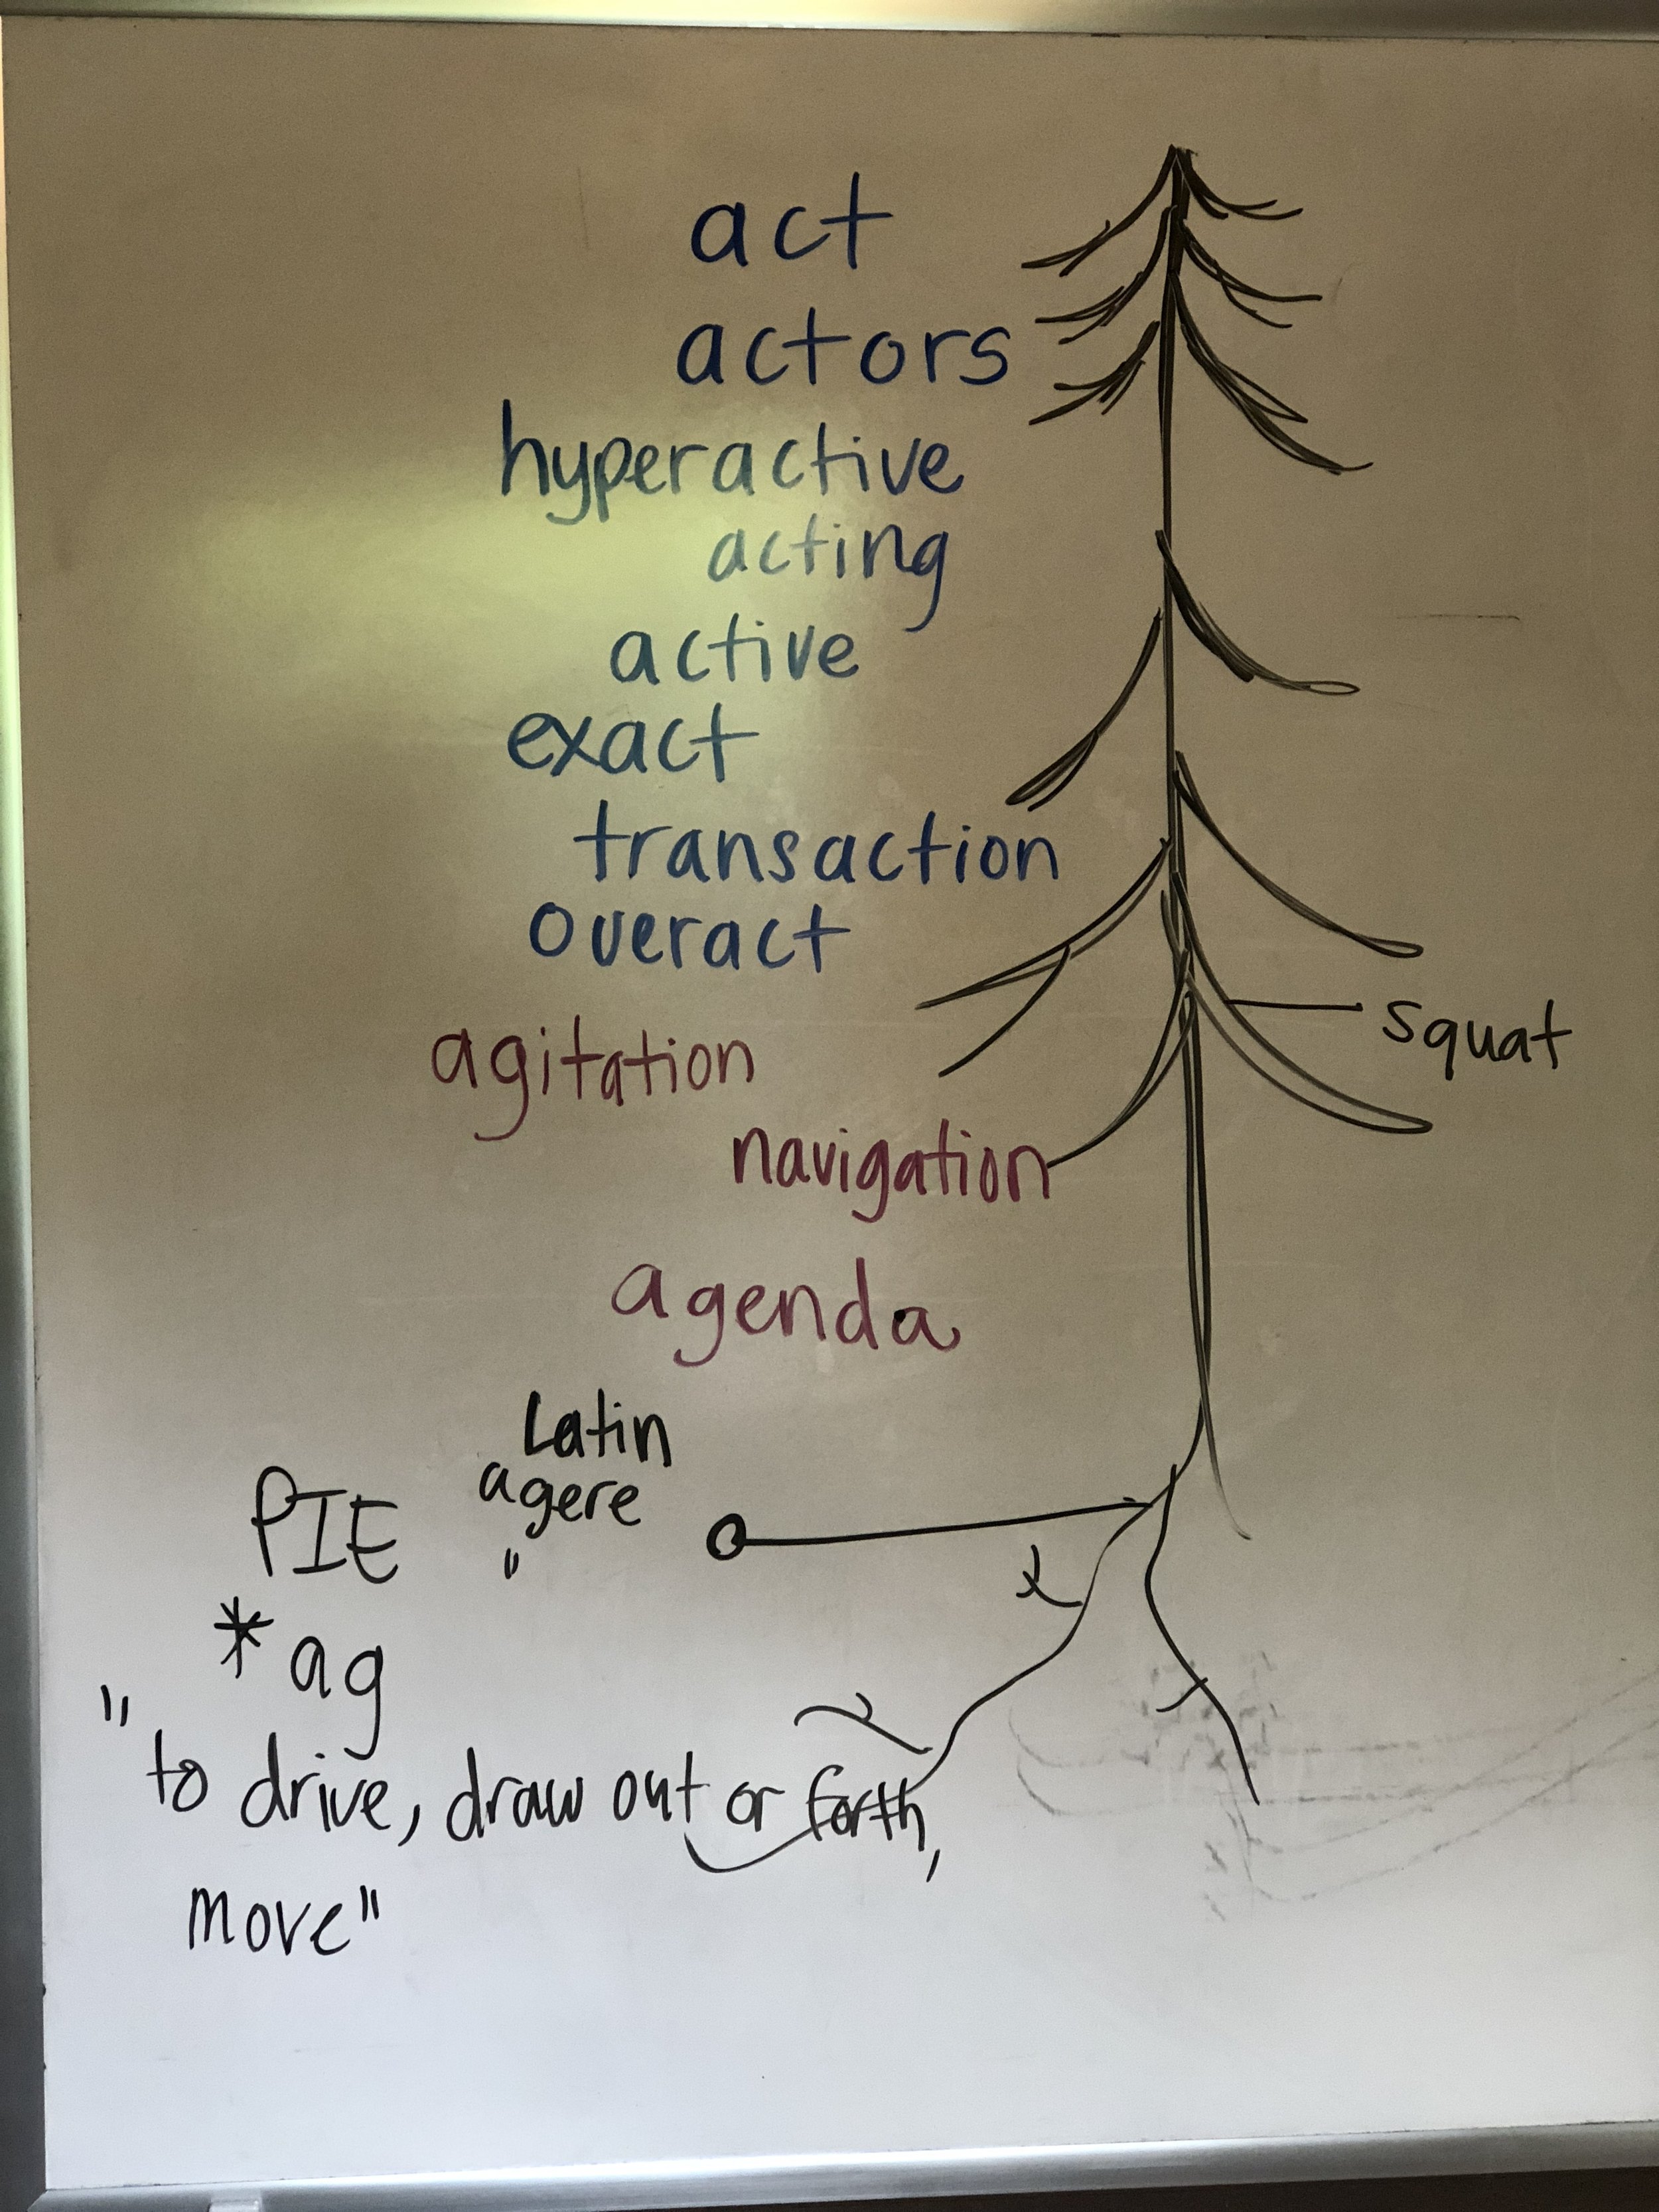 act
actors
hyperactive
acting
active
exact
transaction
overact
squat
agitation
navigation
agenda
Latin
agere
"
PIE
*ag
"to drive, draw out or forth,
move"